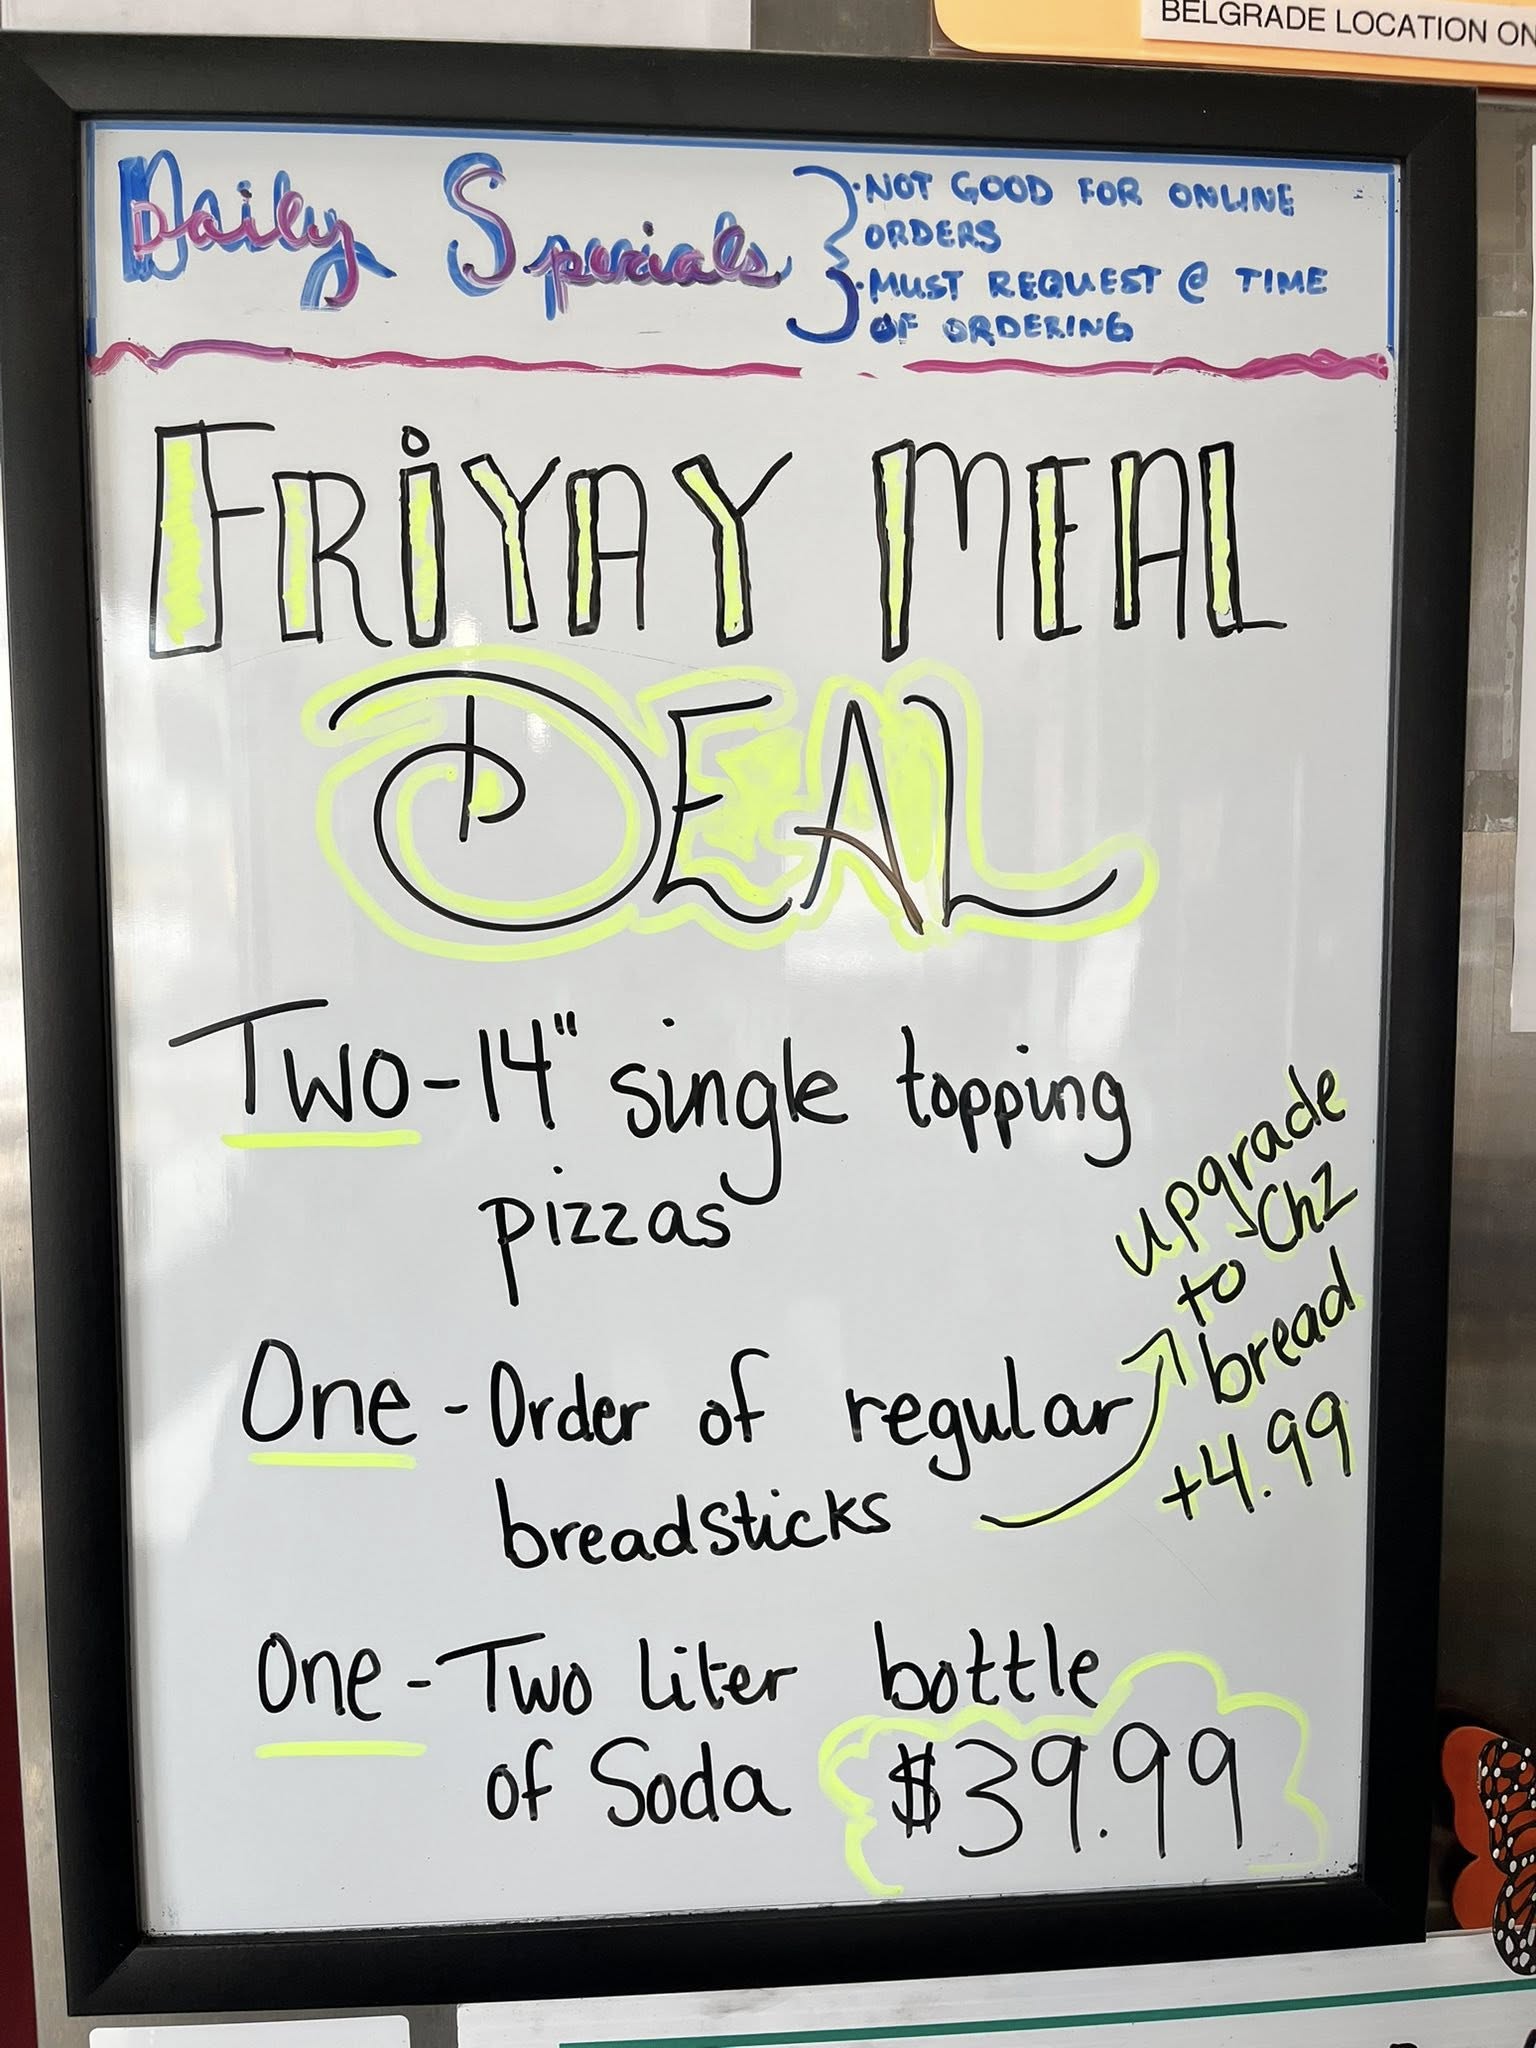 BELGRADE LOCATION ON
Daily Specials
• NOT GOOD FOR ONLINE
ORDERS
• MUST REQUEST @ TIME
OF ORDERING
FRiYAY MEAL
DEAL
Two - 14" single topping
pizzas
One - Order of regular
breadsticks
upgrade
to Chz
bread
+4.99
One - Two liter bottle
of Soda $39.99